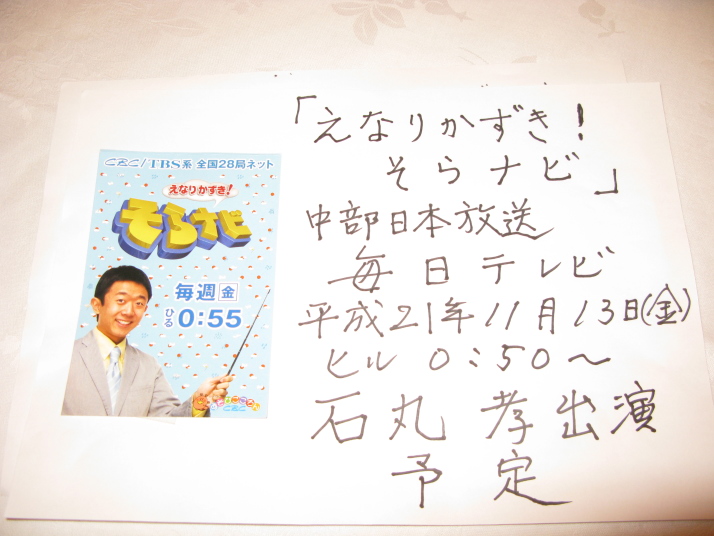 CBC/TBS系 全国28局ネット
えなりかずき!
そらナビ
毎週金
ひる0:55
CBC
「えなりかずき!
そらナビ」
中部日本放送
毎日テレビ
平成21年11月13日(金)
ヒル 0:50〜
石丸 孝出演
予定